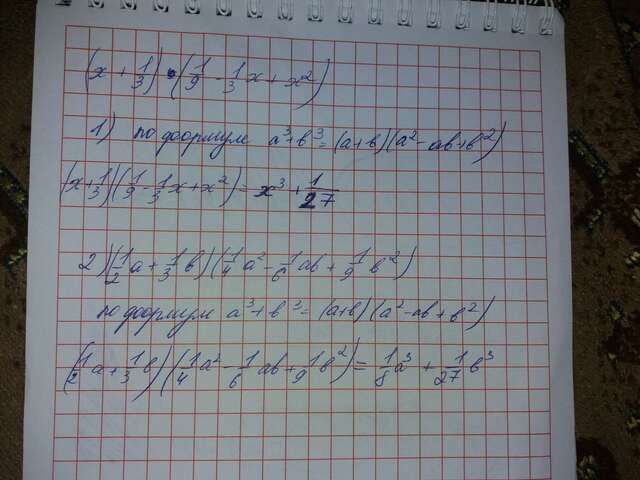 (x + 1/3) • (1/9 - 1/3 x + x²)
1) по формуле a³+в³=(a+в)(a²-aв+в²)
(x+1/3)(1/9-1/3x+x²)= x³ + 1/27
2) (1/2 a+1/3 в)(1/4 a²-1/6 aв + 1/9 в²)
по формуле a³+в³=(a+в)(a²-aв+в²)
(1/2 a+1/3 в)(1/4 a²-1/6 aв+1/9 в²)= 1/8 a³ + 1/27 в³